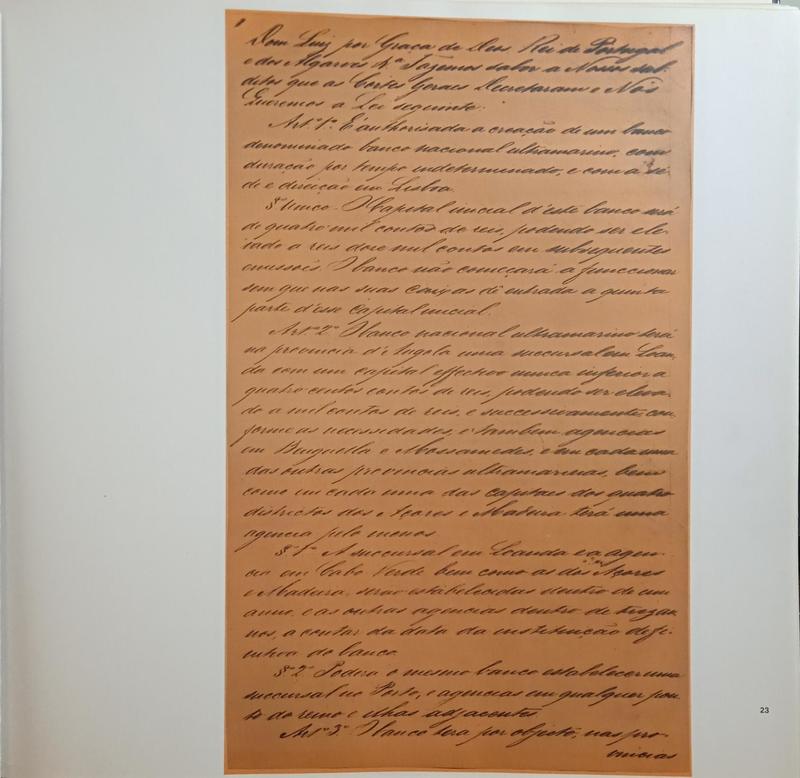 Dom Luiz por Graça de Deos, Rei de Portugal
e dos Algarves &ª Fazemos saber a Nossos sub-
ditos que as Côrtes Geraes Decretaram e Nós
Queremos a Lei seguinte:
Art.º 1.º É authorisada a creação de um banco
denominado banco nacional ultramarino, com
duração por tempo indeterminado, e com a sé-
de e direcção em Lisboa.
§º Unico. O Capital inicial d'este banco será
de quatro mil contos de reis, podendo ser ele-
vado a reis doze mil contos em subsequentes
emissões. O banco não começará a funccionar
sem que nas suas Caixas dê entrada a quinta
parte d'esse Capital inicial.
Art.º 2.º O banco nacional ultramarino terá
na provincia d'Angola uma succursal em Loan-
da com um capital effectivo nunca inferior a
quatro centos contos de reis, podendo ser eleva-
do a mil contos de reis, e successivamente, con-
forme as necessidades, e tambem agencias
em Benguella e Mossamedes, e em cada uma
das outras provincias ultramarinas, bem
como em cada uma das capitaes dos quatro
districtos dos Açores e Madeira terá uma
agencia pelo menos.
§º 1.º A succursal em Loanda e a agen-
cia em Cabo Verde bem como as dos Açores
e Madeira, serão estabelecidas dentro de um
anno, e as outras agencias dentro de trez an-
nos, a contar da data da instituição defi-
nitiva do banco.
§º 2.º Poderá o mesmo banco estabelecer uma
succursal no Porto, e agencias em qualquer pon-
to do reino e ilhas adjacentes.
Art.º 3.º O banco terá por objecto, nas pro-
vincias
23